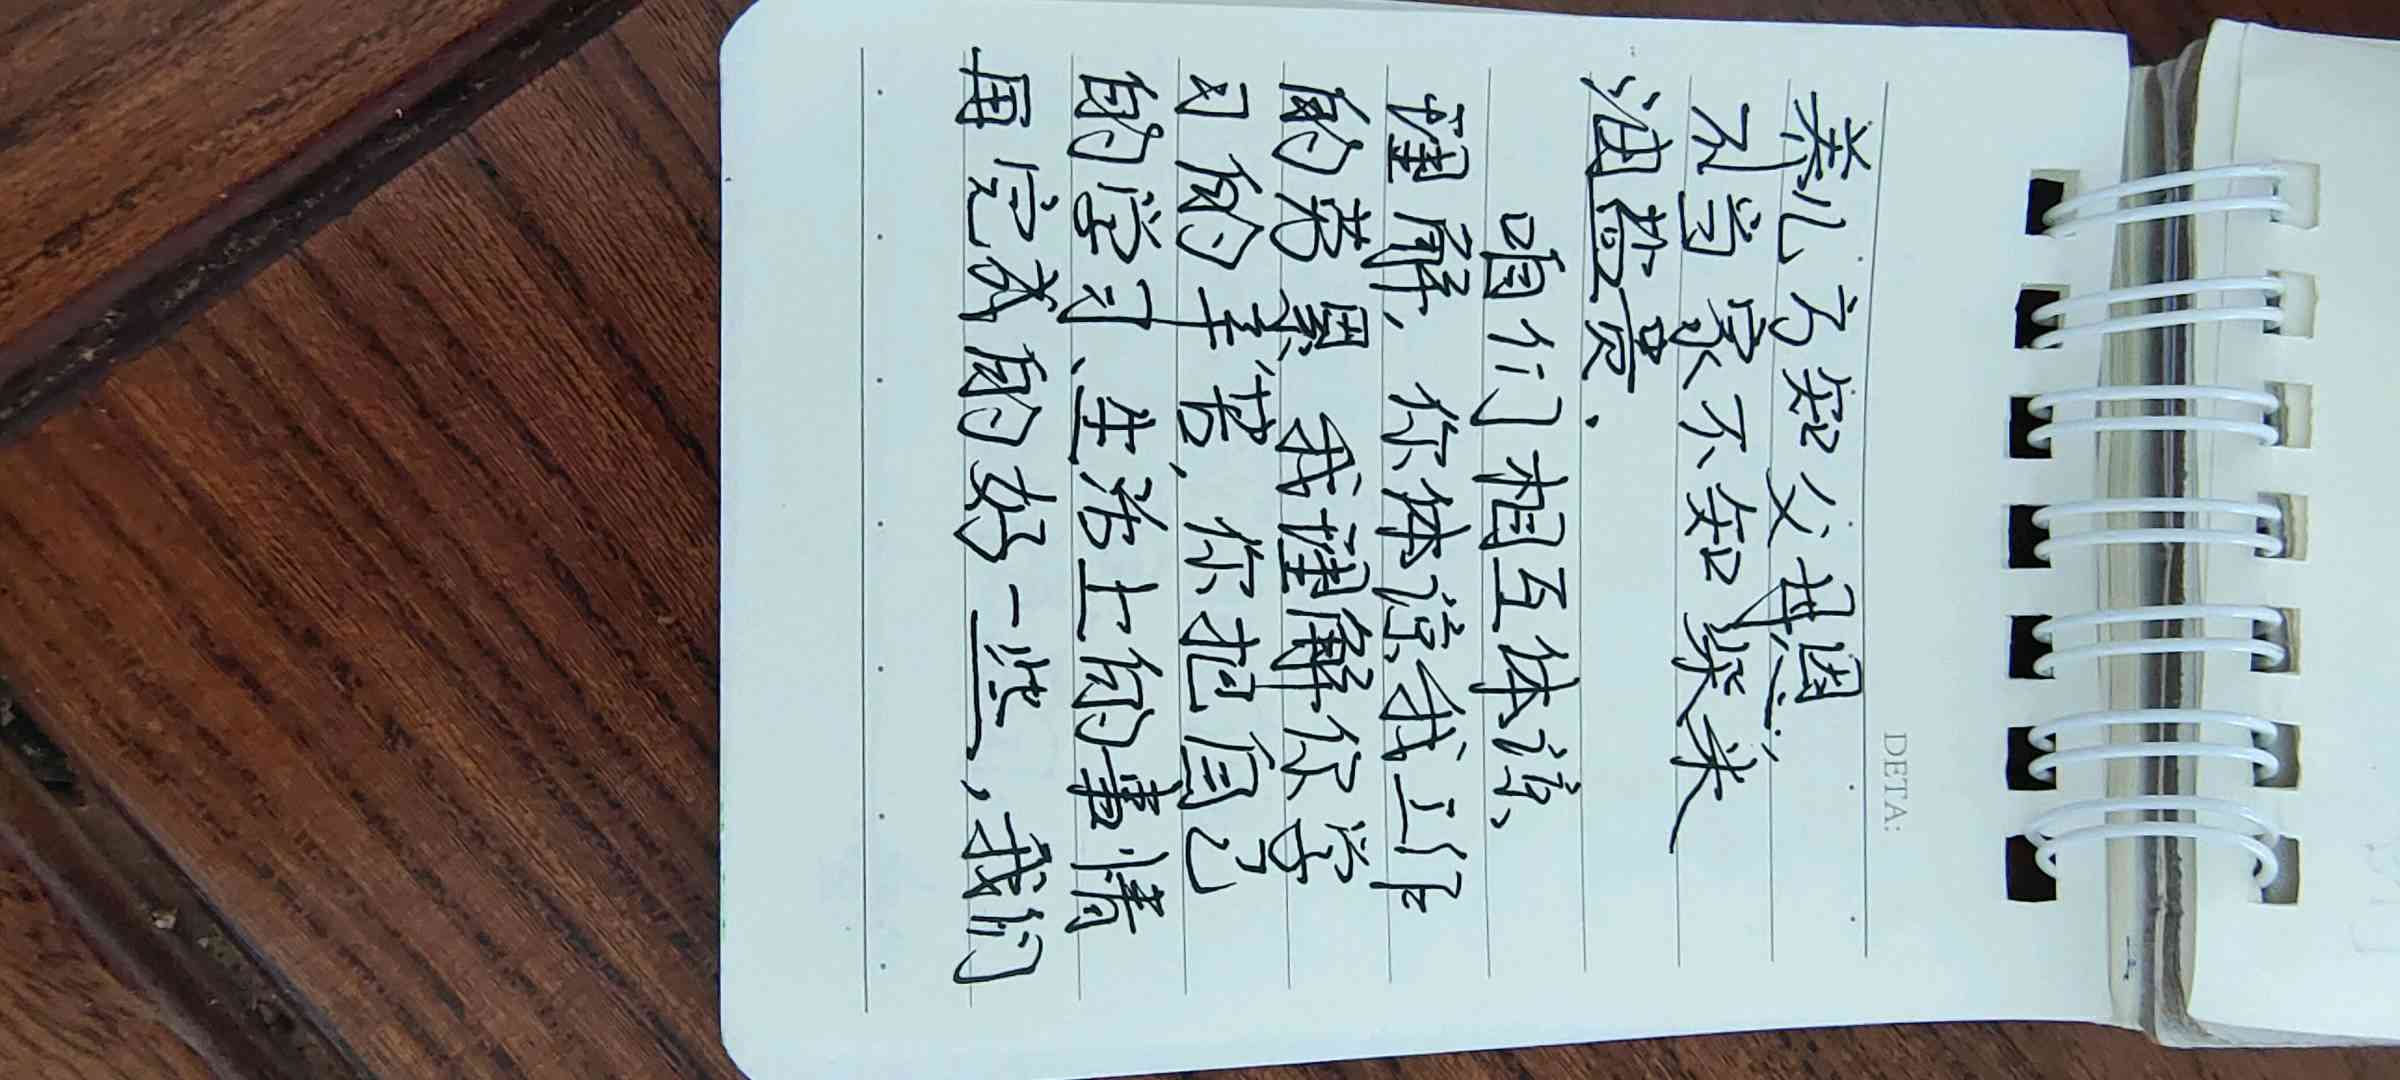 DETA:
养儿方知父母恩
不当家不知柴米
油盐贵.
咱们相互体谅、
理解、你体谅我工作
的劳累 我理解你学
习的辛苦、你把自己
的学习、生活上的事情
再完成的好一些,我们